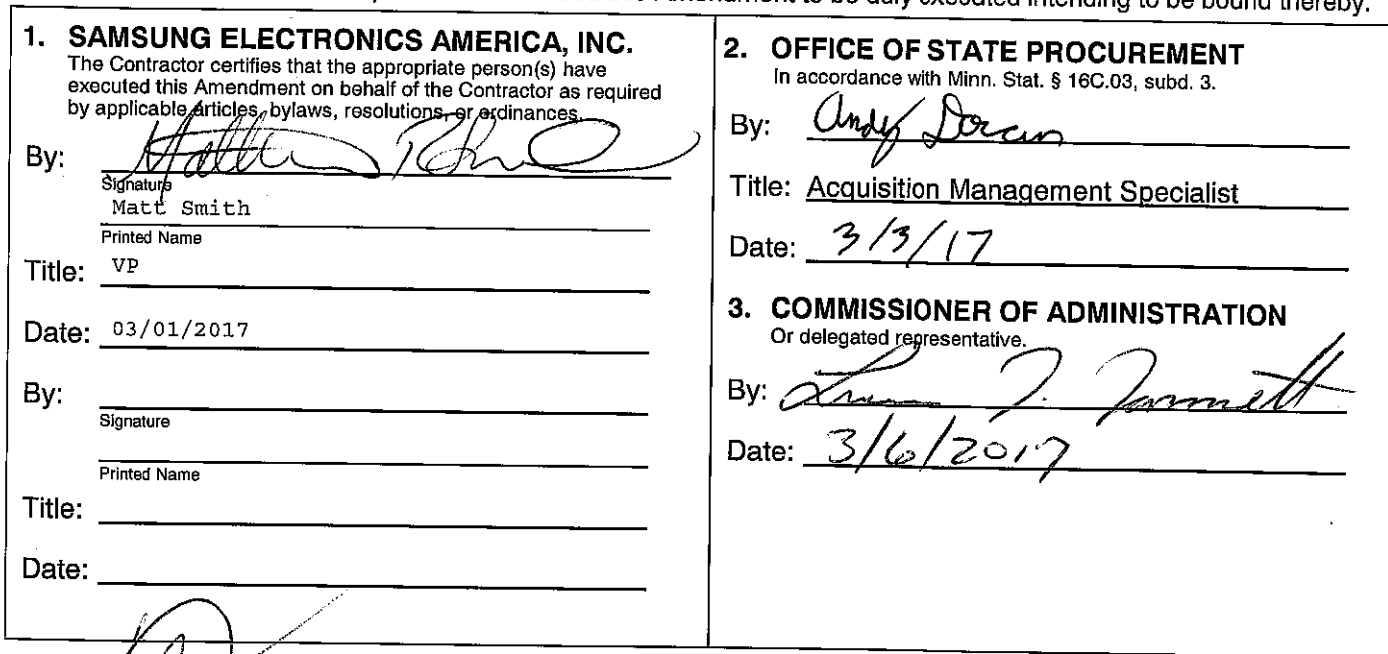 Amendment to be duly executed intending to be bound thereby.
1. SAMSUNG ELECTRONICS AMERICA, INC.
The Contractor certifies that the appropriate person(s) have
executed this Amendment on behalf of the Contractor as required
by applicable articles, bylaws, resolutions, or ordinances.
By:
Signature
Matt Smith
Printed Name
Title: VP
Date: 03/01/2017
By:
Signature
Printed Name
Title:
Date:
2. OFFICE OF STATE PROCUREMENT
In accordance with Minn. Stat. § 16C.03, subd. 3.
By: Andy Doran
Title: Acquisition Management Specialist
Date: 3/3/17
3. COMMISSIONER OF ADMINISTRATION
Or delegated representative.
By:
Date: 3/6/2017